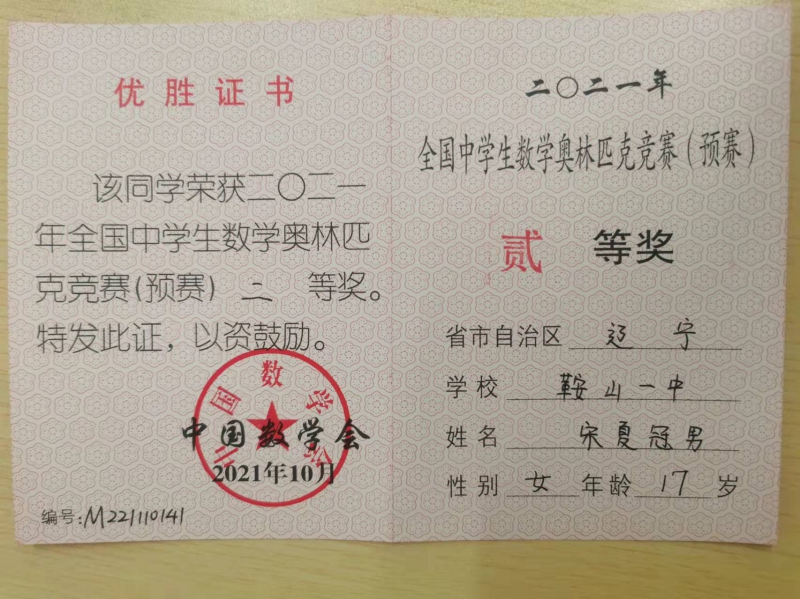 优胜证书
该同学荣获二〇二一
年全国中学生数学奥林匹
克竞赛(预赛) 二 等奖。
特发此证，以资鼓励。
中国数学会
中国数学会
2021年10月
编号:M221110141
二〇二一年
全国中学生数学奥林匹克竞赛(预赛)
贰 等奖
省市自治区 辽宁
学校 鞍山一中
姓名 宋夏冠男
性别 女 年龄 17 岁